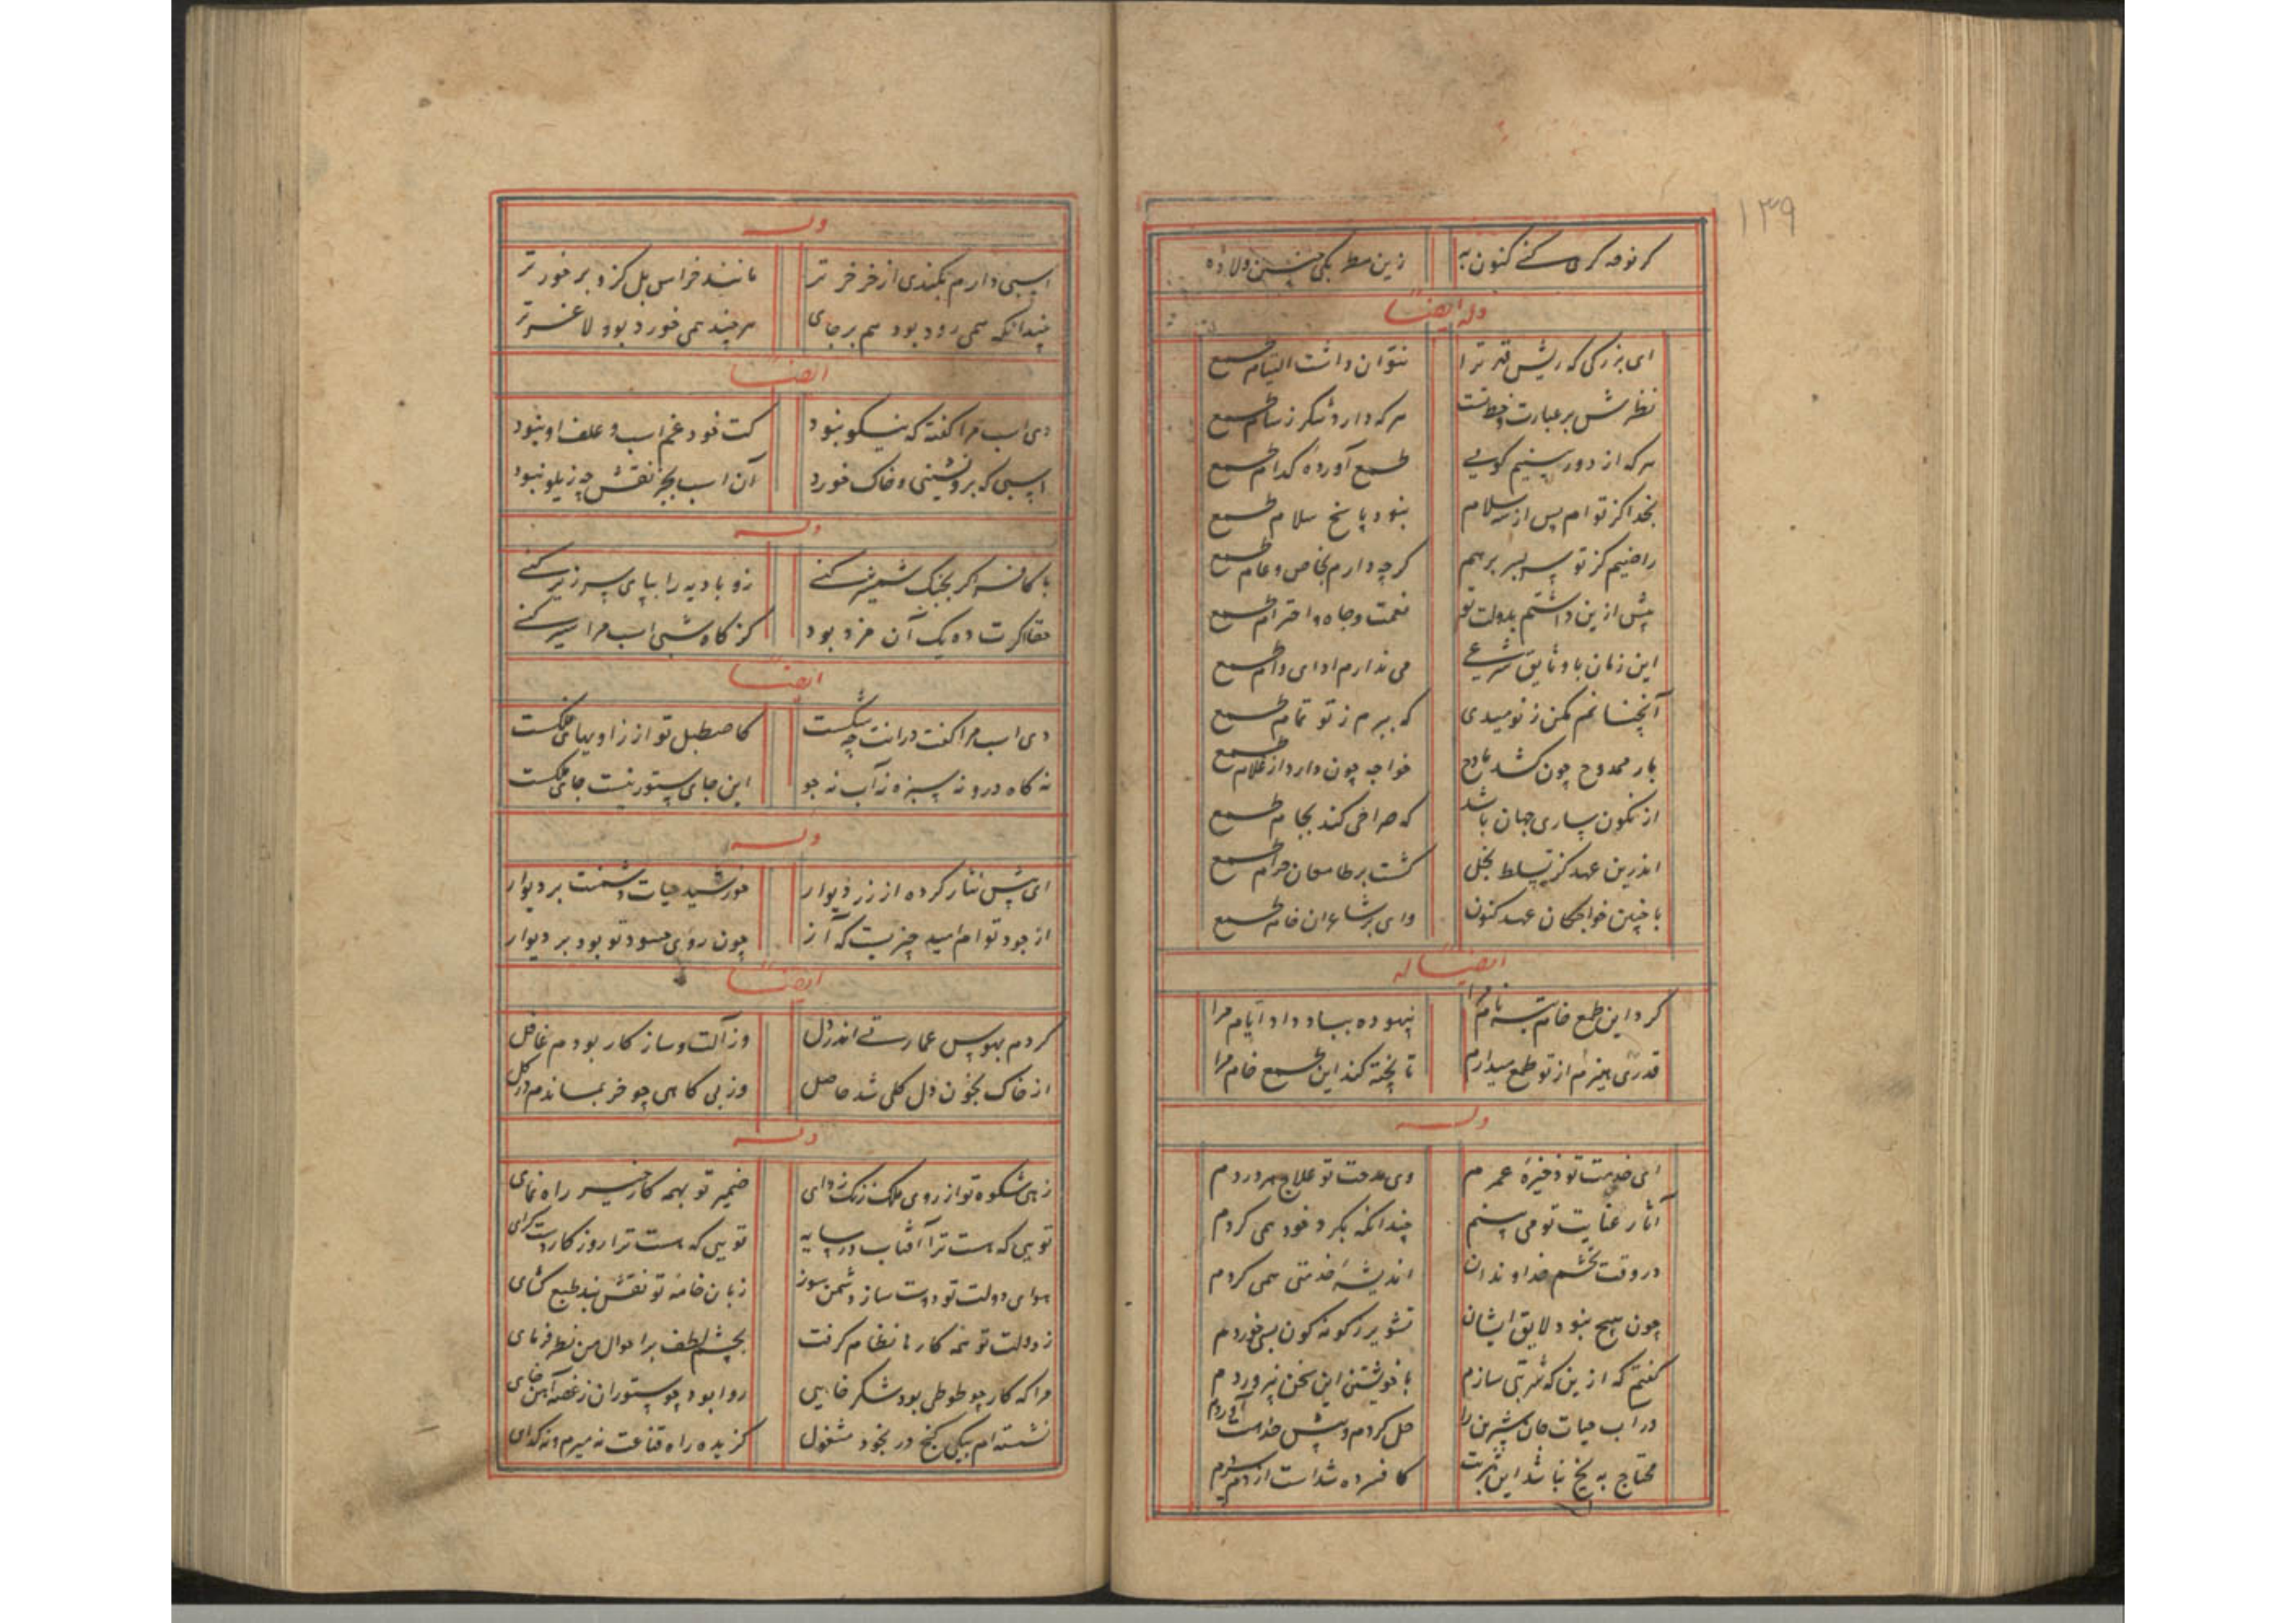 ۱۳۹
کر توقه کر کنے کنون به زین مطر یکی چنین ولاده
وله ایضاً
ای بزرکی که ریش قدر ترا نتوان داشت التیام طمع
نظرش بر عبارت و خطتست هر که دارد شکر ز سالم طمع
هر که از دور بینیم کویی طمع آورده کدام طمع
بخدا کز توام پس از سلام نبود پاسخ سلام طمع
راضیم کز تو سر بسر برهم کر چه دارم بخاص و عام طمع
پیش ازین داشتم بدولت تو نعمت و جاه و احترام طمع
این زمان با وثایق شرعی می ندارم ادای وام طمع
آنچنانم مکن ز نومیدی که ببرم ز تو تمام طمع
بار ممدوح چون کشد مادح خواجه چون دارد از غلام طمع
از نکون ساری جهان باشد که صراحی کند بجام طمع
اندرین عهد کز تسلط بخل کشت بر طامعان حرام طمع
با چنین خواجکان عهد کنون وای بر شاعران خام طمع
ایضاً له
کرد این طمع خام تبه نام مرا بیهوده بباد داد ایام مرا
قدری هیزم از تو طمع میدارم تا پخته کند این طمع خام مرا
وله
ای خدمت تو ذخیرهٔ عمرم وی مدحت تو علاج هر دردم
آثار عنایت تو می بینم چندانکه بکرد خود همی کردم
در وقت تخشم خداوندان اندیشهٔ خدمتی همی کردم
چون هیچ نبود لایق ایشان تشویر ز کونه کون بسی خوردم
کفتم که ازین که شربتی سازم با خویشتن این سخن بپروردم
در آب حیات جان شیرین را حل کردم و پیش خدمت آوردم
محتاج به یخ نباشد این شربت کافسرده شداست از دم سردم
وله
اسبی دارم بکندی از خر خرتر مانند خراس بل کزو بر خورتر
چندانکه همی رود بود هم بر جای هر چند همی خورد بود لاغرتر
ایضاً
دی اسب مرا کفته که نیکو نبود کت خود غم اسب و علف او نبود
اسبی که برو نشینی و خاک خورد آن اسب بجز نقش چه زیلو نبود
وله
با کافر اکر بجنک شمشیر کنے زو بادیه را بپای سر زیر کنے
حقا کرت ده یک آن مزد بود کز کاه شبی اسب مرا سیر کنے
ایضاً
دی اسب مرا کفت درانت چه شکست کاصطبل تو از زاویهای فلکست
نه کاه درو نه سبزه نه آب نه جو این جای ستور نیست جای ملکست
وله
ای پیش نثار کرده از زر دیوار خورشید حیات دشمنت بر دیوار
از جود توام امید چیزیست که آن چون روی حسود تو بود بر دیوار
ایضاً
کردم بهوس عمارتے اندر دل وز آلت و ساز کار بودم غافل
از خاک بخون دل کلی شد حاصل وز بی کاهی چو خر بماندم در کل
وله
زهی شکوه تو از روی ملک زنک زدای ضمیر تو بهمه کار خیر راه نمای
تویی که هست ترا آفتاب در سایه تویی که هست ترا روز کار دست کرای
هوای دولت تو دوست ساز دشمن سوز زبان خامه تو نقش بند طبع کشای
ز دولت تو همه کارها نظام کرفت بچشم لطف بر احوال من نظر فرمای
مرا که کار چو طوطی بود شکر خایی روا بود چو ستوران ز غصه آهن خای
نشسته ام بیکی کنج در بخود مشغول کزیده راه قناعت نه میرم و نه کدای